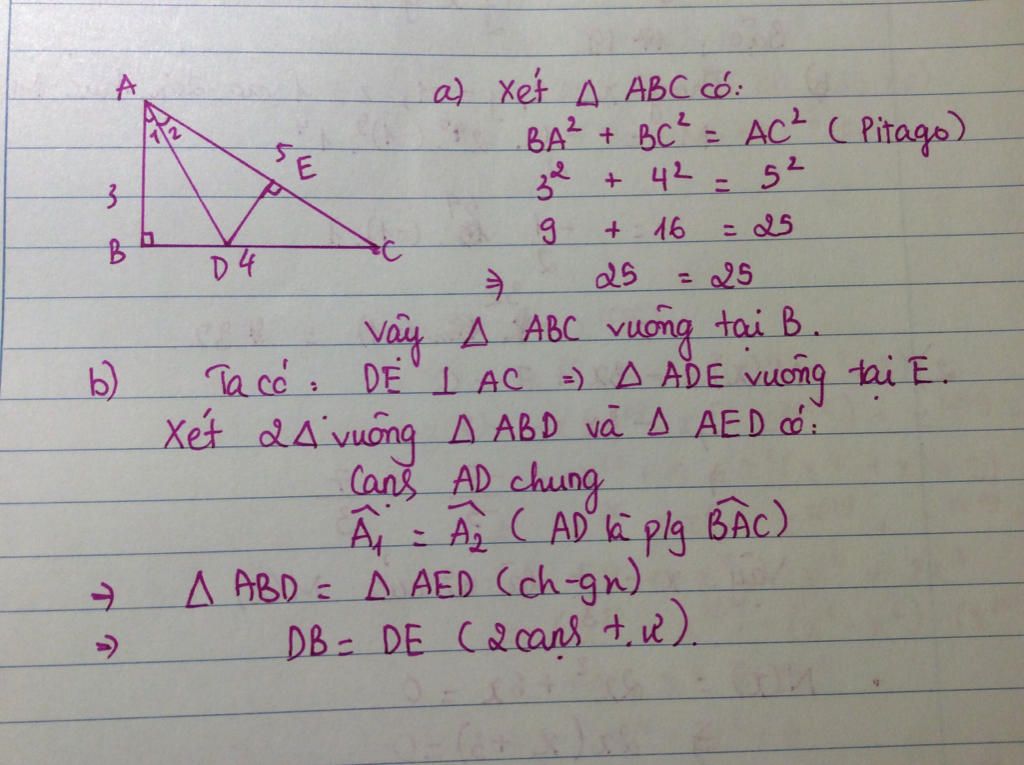 A
1 2
5 E
3
B
D 4
C
a) Xét Δ ABC có:
BA² + BC² = AC² (Pitago)
3² + 4² = 5²
9 + 16 = 25
⇒ 25 = 25
Vậy Δ ABC vuông tại B.
b) Ta có: DE ⊥ AC ⇒ Δ ADE vuông tại E.
Xét 2Δ vuông Δ ABD và Δ AED có:
Cạnh AD chung
Â₁ = Â₂ (AD là p/g BÂC)
⇒ Δ ABD = Δ AED (ch-gn)
⇒ DB = DE (2 cạnh t.ư).